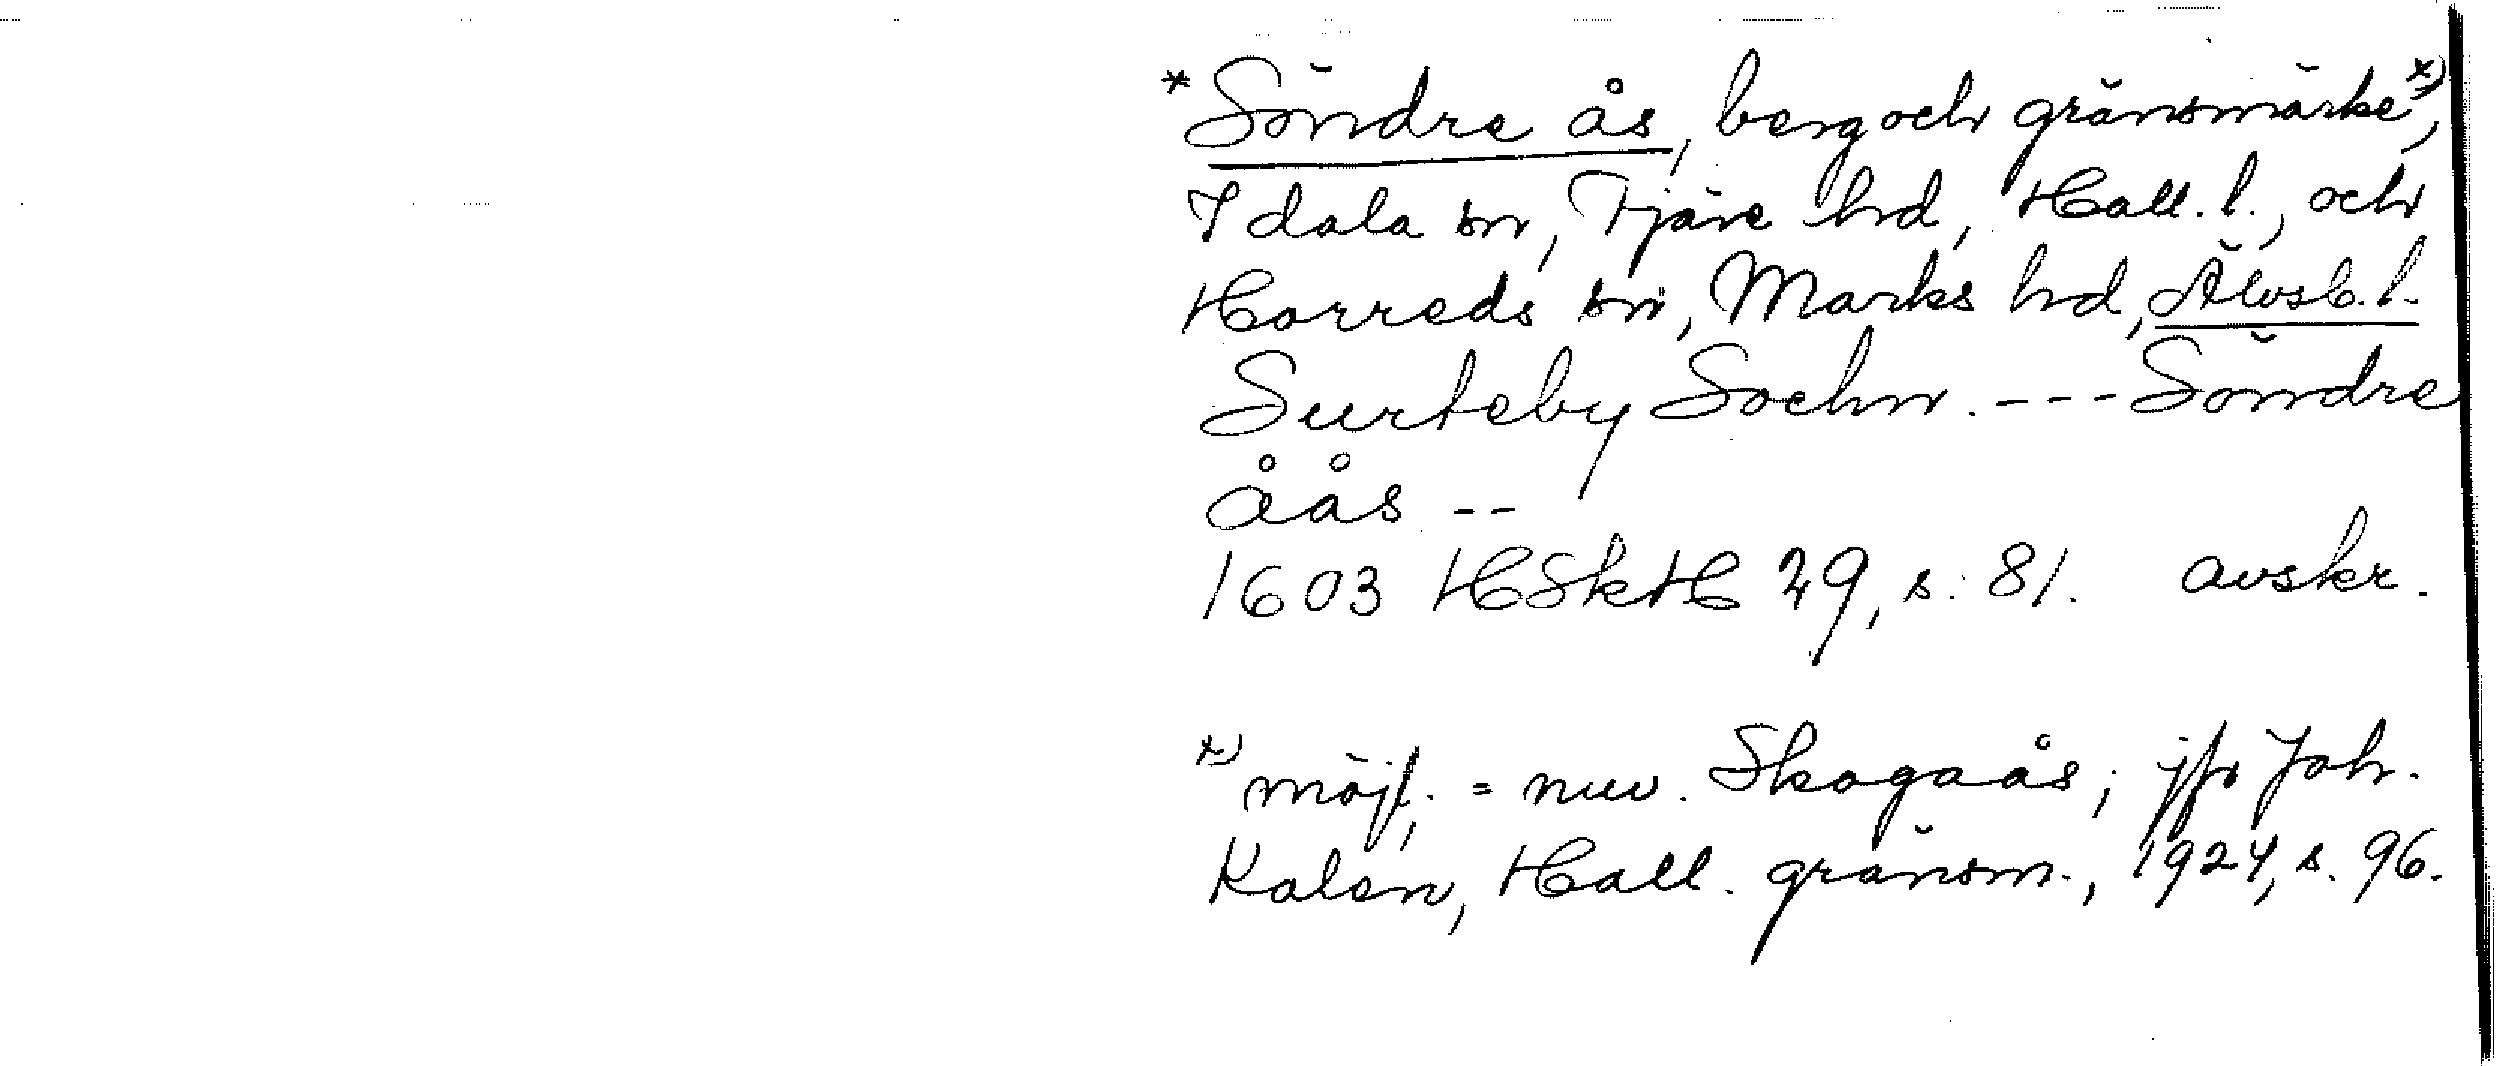 * Söndre ås, berg och gränsmärke *),
Idala sn, Fjäre hd, Hall. l., och
Horreds sn, Marks hd, Älvsb. l.
Surteby Sochn. --- Söndre
åås --
1603 HSkH 29, s. 81. avskr.
*) möjl. = nuv. Skogaås; jfr Joh.
Kalén, Hall. gränsm., 1924, s. 96.